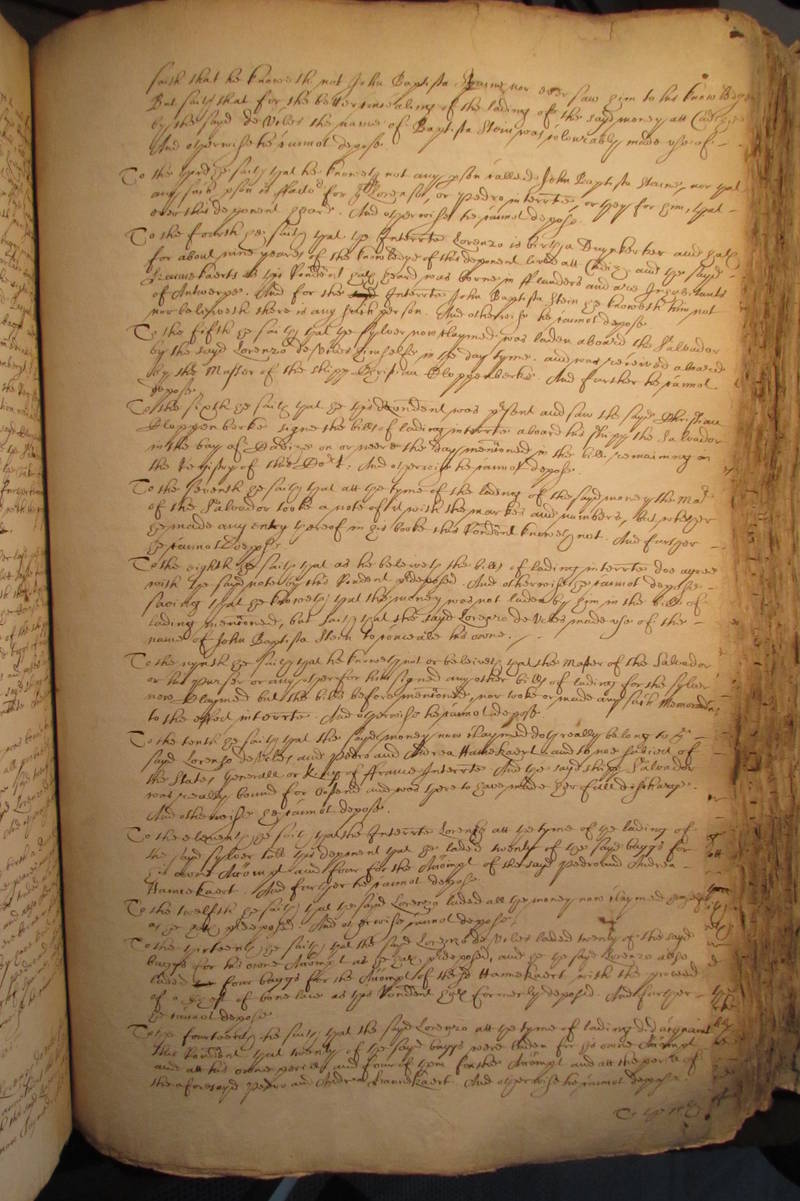 saith that he knoweth not John Baptista Staine nor ever saw him to his knowledge
But saith that for the better concealing of the lading of the sayd money att Cadiz
by the sayd de Veles the name of Baptista Stein was colourably made use of
And otherwise he cannot depose
To the third hee saith that he knoweth not any pson called John Baptista Staine, nor that
any such pson is ffactor for Lorenzo, or Pedro interrte, or they for him, that
ever this deponent heard. And otherwise he cannot depose
To the fourth hee saith that the Interrte Lorenzo is birth a Dunkerker and hath
for about nine yeares of the knowledge of this deponent lived att Cadiz and the sayd
Hannekaerts as this Rendent hath heard was borne in Flanders and are Inhabitants
of Antwerpe. And for the Interrte John Baptista Stein he knoweth him not
nor beleiveth there is any such person. And otherwise he cannot depose
To the fifth he saith that the sylver now claymed was laden aboard the Salvador
by the sayd Lorenzo de Veles himselfe in the day tyme. and was received aboard
by the Master of the shipp Christian Cloppenberke. And further he cannot
depose
To the sixth he saith that he this Rendent was present and saw the sayd Christian
Cloppenborke signe the bills of lading interrte aboard his shipp the Salvador
in the bay of Cadize on or neere the day mentioned in the bills remaining in
the Registry of this Cort. And otherwise he cannot depose.
To the seventh he saith that att the tyme of the lading of the sayd money the Mar
of the Salvador tooke a note of it with the markes and numbers, but whether
he made any entry thereof in his booke this Rendent knoweth not. And further
he cannot depose
To the eighth he saith that as he beleiveth the bills of lading interrte doe agree
with the sayd note by this Rendent predeposed. And otherwise he cannot depose
saving that he knoweth that the money was not laden by him in the bills of
lading mentioned, but saith that the sayd Lorenzo de Veles made use of the
name of John Baptista Stein to conceale his owne.
To the nynth he saith that he knoweth not or beleiveth that the Master of the Salvador
or his Purser or any other for him signed any other bills of lading for the sylver
now claymed but the bills before mentioned, nor tooke or made any such Memorandum
to the effect interrte. And otherwise he cannot depose
To the tenth he saith that the sayd money now claymed doth really belong to the
sayd Lorenzo de Veles and Pedro and Andrea Hannekaert and to noe subject of
the States Generall or King of France Interrte And the sayd shipp Salvador
was really bound for Ostend and was there to have made her full discharge.
And otherwise he cannot depose.
To the eleventh he saith that the Interrte Lorenzo att the tyme of the lading of
the sayd sylver told this deponent that he laded twenty of the sayd baggs for
his owne Accompt and four for the Accompt of the sayd Pedro and Andrea
Hannekaert. And further he cannot depose
To the twelfth he saith that the sayd Lorenzo laded all the money now claymed himselfe
as he hath predeposed. And otherwise cannot depose.
To the thirteenth he saith that the sayd Lorenzo de Veles laded twenty of the sayd
baggs for his owne Accompt as he hath predeposed, and he the sayd Lorenzo alsoe
laded four baggs for the Accompt of the sd Hannekaert with the proceed
of a chest of bone lace as this Rendent hath formerly deposed. And further
he cannot depose
To the fourteenth he saith that the sayd Lorenzo att the tyme of lading did acquaint
this Rendent that twenty of the sayd baggs were laden for his owne Accompt
and att his owne perill, and four of them for the Accompt and att the perill of
the aforesayd Pedro and Andrea Hannekaert. And otherwise he cannot depose.
To the